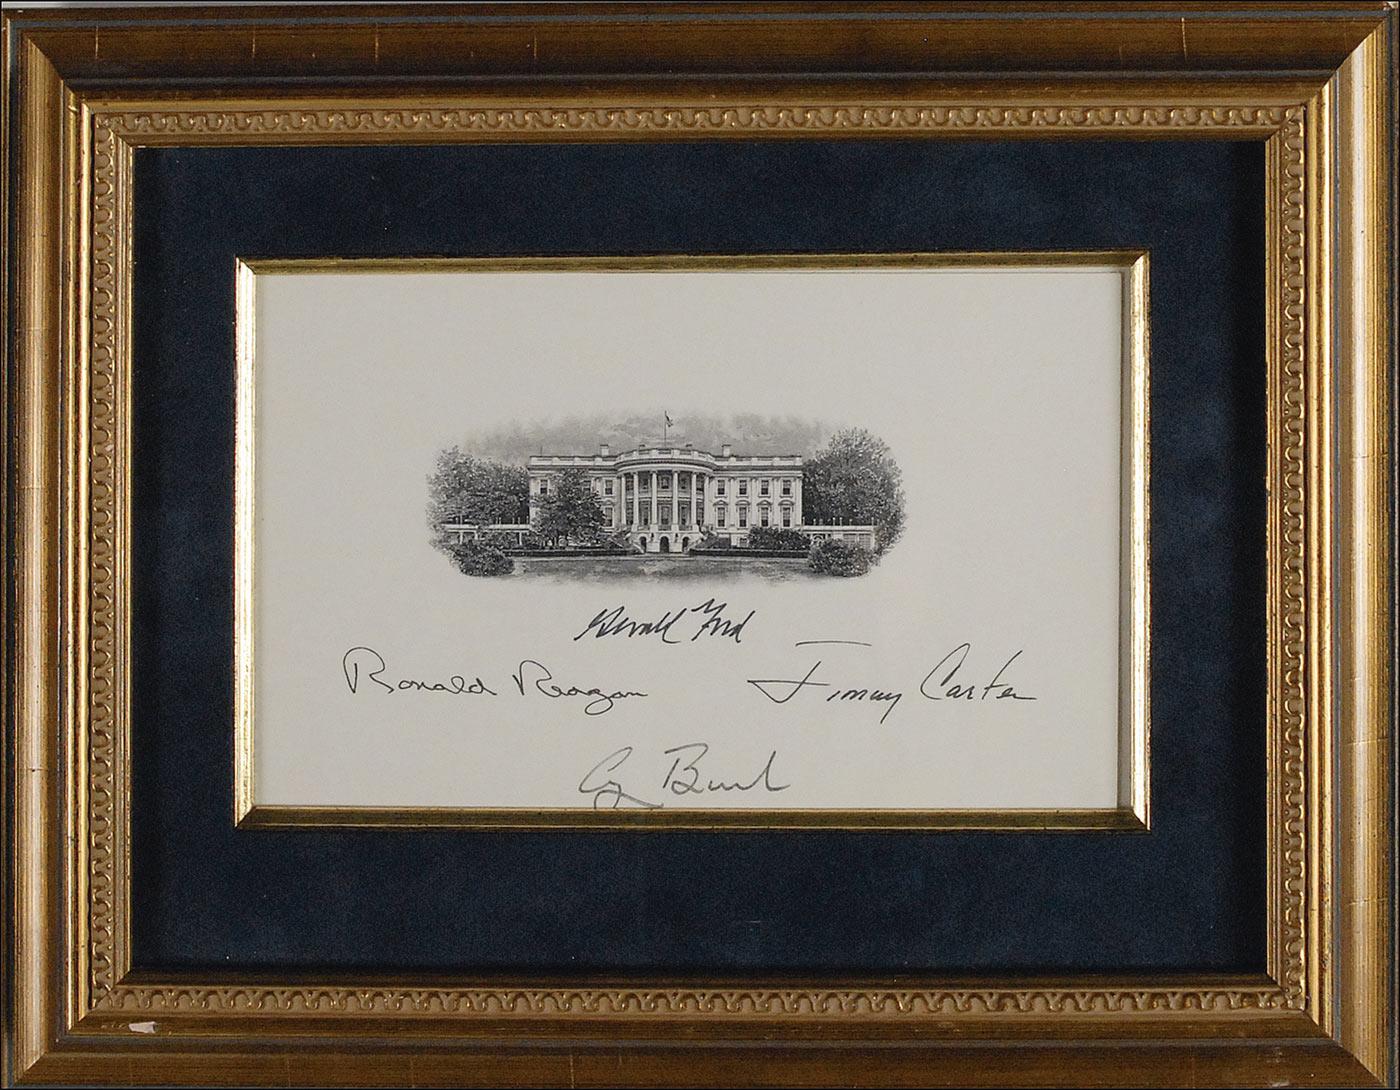 Gerald Ford
Ronald Reagan Jimmy Carter
G Bush